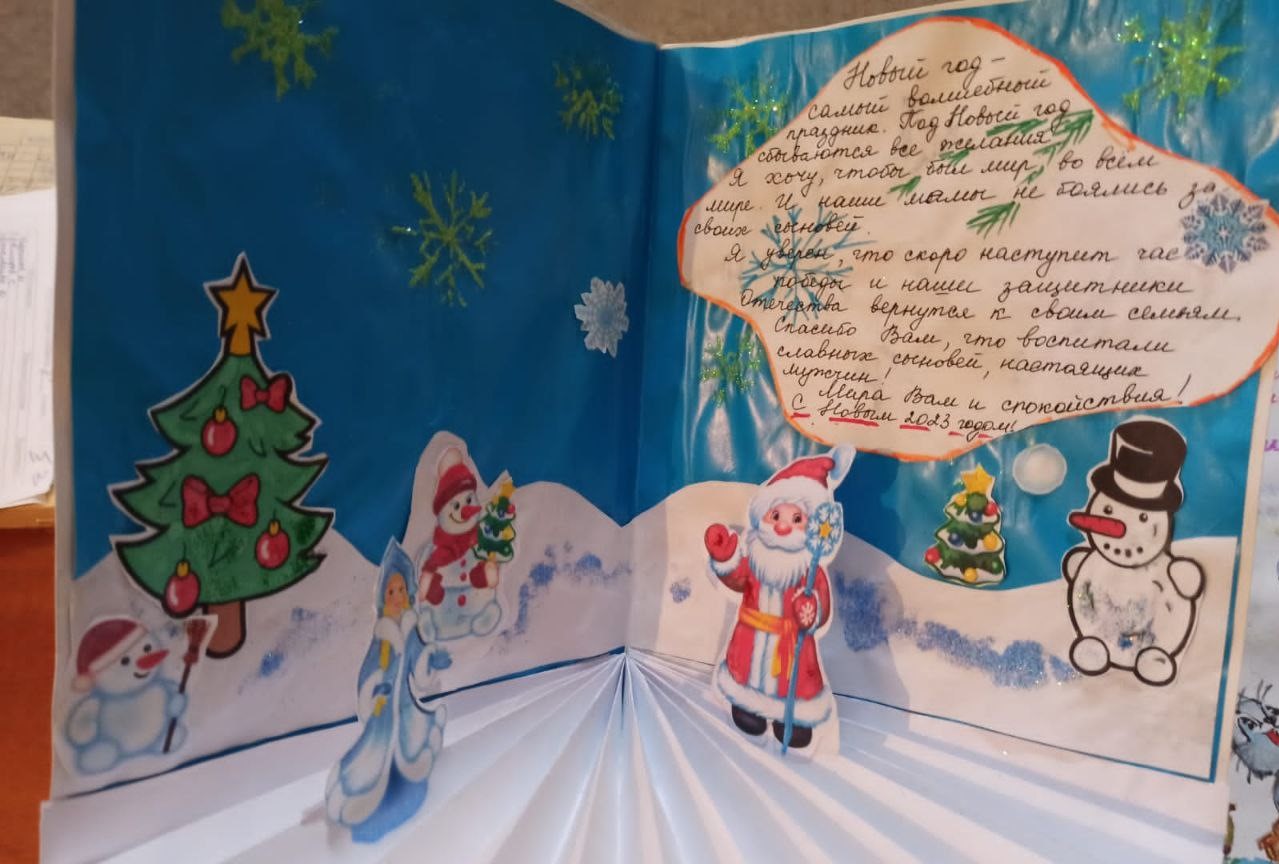 Новый год -
самый волшебный
праздник. Под Новый год
сбываются все желания
Я хочу, чтобы был мир, во всём
мире. И наши мамы не боялись за
своих сыновей.
Я уверен, что скоро наступит час
победы и наши защитники
Отечества вернутся к своим семьям.
Спасибо Вам, что воспитали
славных сыновей, настоящих
мужчин!
Мира Вам и спокойствия!
С Новым 2023 годом!